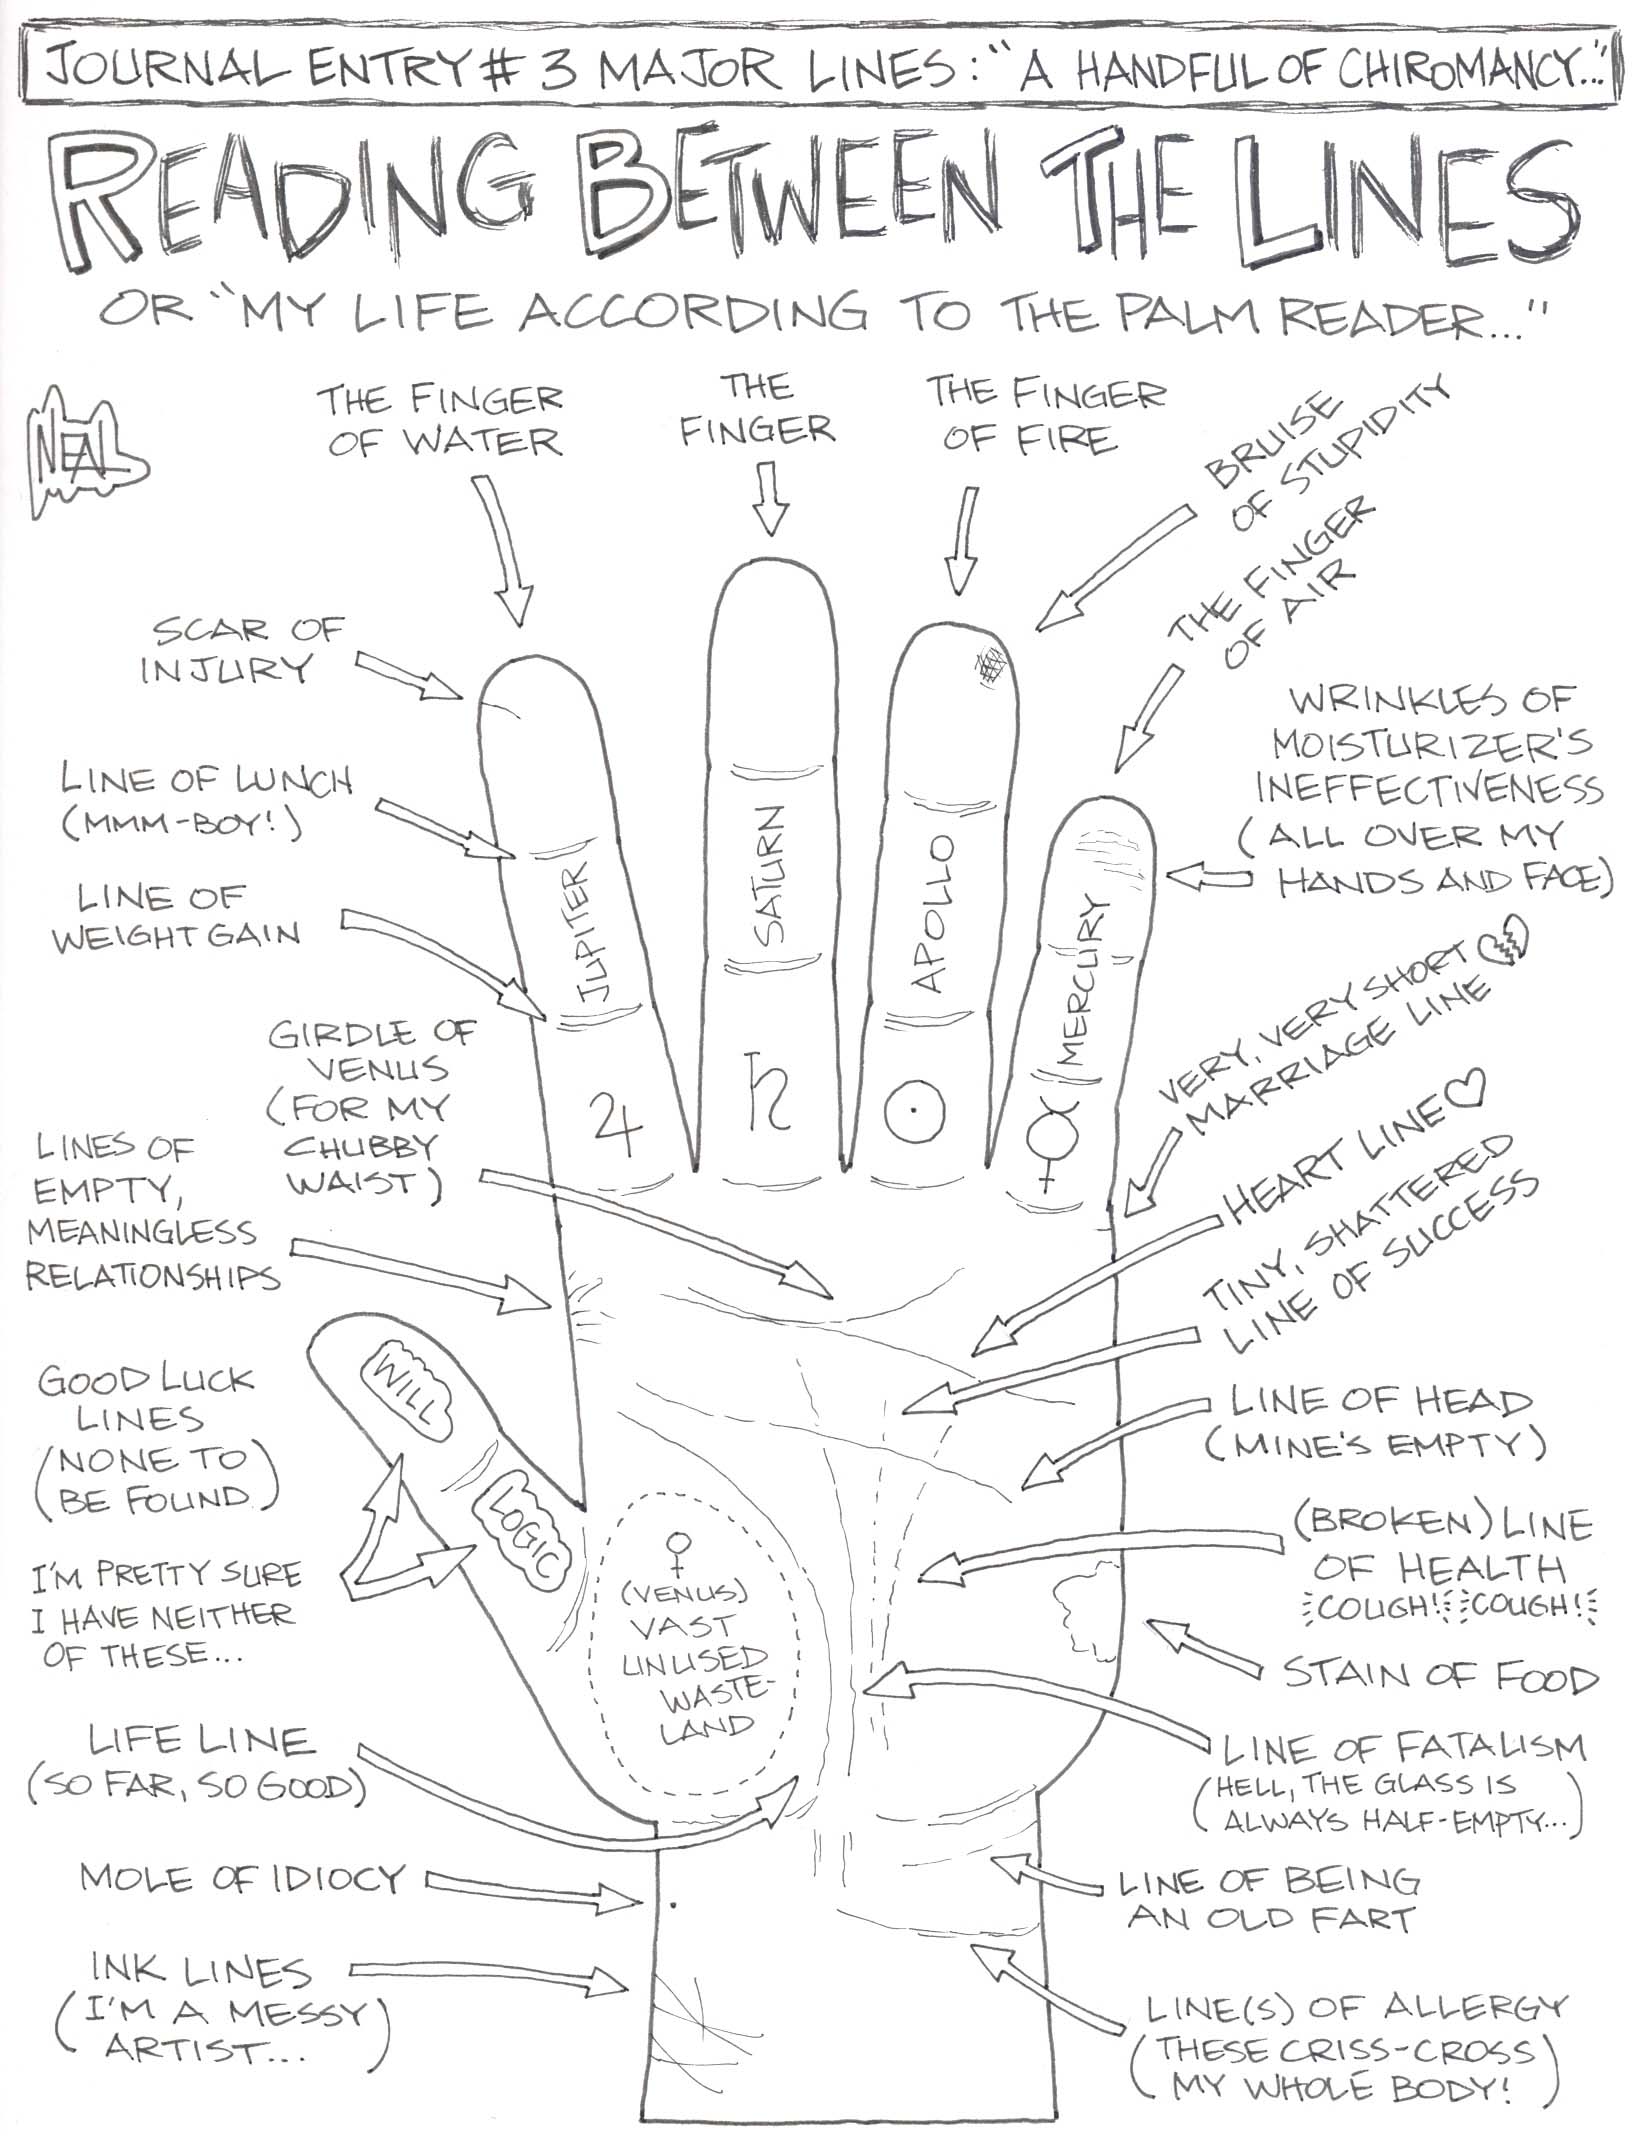 JOURNAL ENTRY # 3 MAJOR LINES: "A HANDFUL OF CHIROMANCY..."
READING BETWEEN THE LINES
OR "MY LIFE ACCORDING TO THE PALM READER..."
NEAL
THE FINGER
OF WATER
THE
FINGER
THE FINGER
OF FIRE
BRUISE
OF STUPIDITY
THE FINGER
OF AIR
SCAR OF
INJURY
WRINKLES OF
MOISTURIZER'S
INEFFECTIVENESS
(ALL OVER MY
HANDS AND FACE)
LINE OF LUNCH
(MMM-BOY!)
LINE OF
WEIGHT GAIN
JUPITER
SATURN
APOLLO
MERCURY
VERY, VERY SHORT
MARRIAGE LINE
GIRDLE OF
VENUS
(FOR MY
CHUBBY
WAIST)
HEART LINE
LINES OF
EMPTY,
MEANINGLESS
RELATIONSHIPS
TINY, SHATTERED
LINE OF SUCCESS
GOOD LUCK
LINES
(NONE TO
BE FOUND)
WILL
LOGIC
LINE OF HEAD
(MINE'S EMPTY)
I'M PRETTY SURE
I HAVE NEITHER
OF THESE...
(VENUS)
VAST
UNUSED
WASTE-
LAND
(BROKEN) LINE
OF HEALTH
COUGH! COUGH!
STAIN OF FOOD
LIFE LINE
(SO FAR, SO GOOD)
LINE OF FATALISM
(HELL, THE GLASS IS
ALWAYS HALF-EMPTY...)
MOLE OF IDIOCY
LINE OF BEING
AN OLD FART
INK LINES
(I'M A MESSY
ARTIST...)
LINE(S) OF ALLERGY
(THESE CRISS-CROSS
MY WHOLE BODY!)